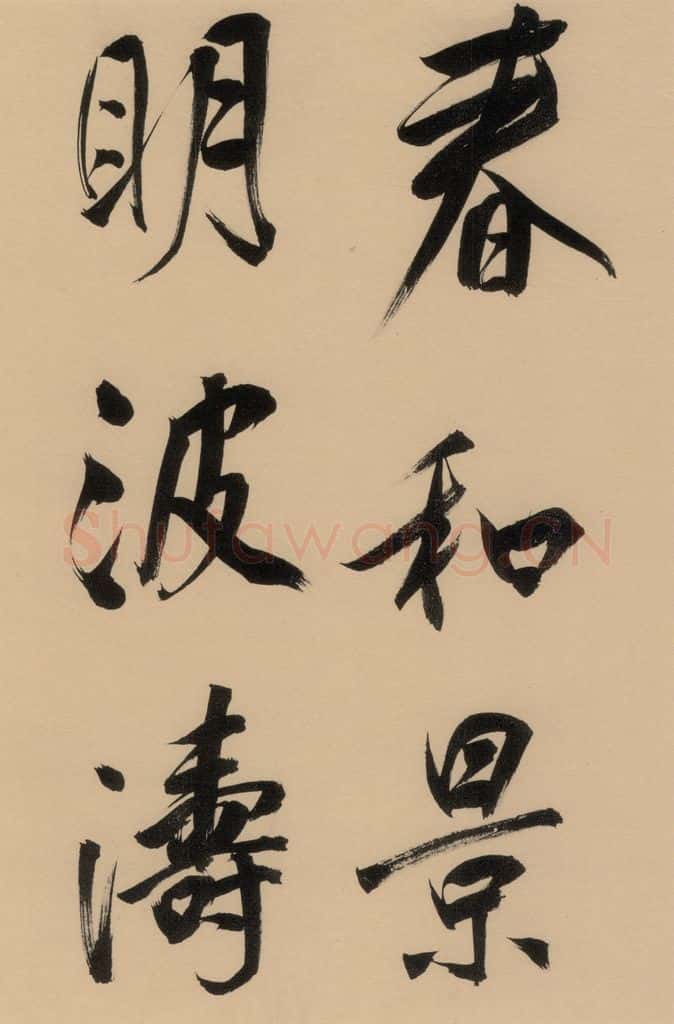 春和景
明波濤
Shufawang.CN